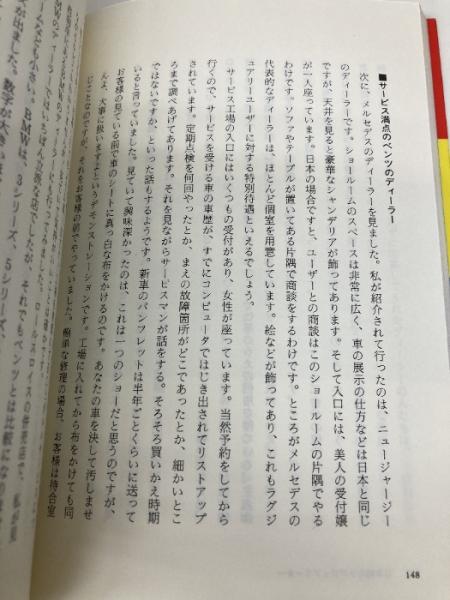 ■サービス満点のベンツのディーラー
次に、メルセデスのディーラーを見ました。私が紹介されて行ったのは、ニュージャージー
のディーラーです。ショールームのスペースは非常に広く、車の展示の仕方などは日本と同じ
ですが、天井を見ると豪華なシャンデリアが飾ってあります。そして入口には、美人の受付嬢
が一人座っています。日本の場合ですと、ユーザーとの商談はこのショールームの片隅でやる
わけです。ソファやテーブルが置いてある片隅で商談をするわけです。ところがメルセデスの
代表的なディーラーは、ほとんど個室を用意しています。絵などが飾ってあり、これもラグジ
ュアリーユーザーに対する特別待遇といえるでしょう。
サービス工場の入口にはいくつもの受付があり、女性が座っています。当然予約をしてから
行くので、サービスを受ける車の車歴が、すでにコンピュータではじき出されてリストアップ
されています。定期点検を何回やったとか、まえの故障箇所がどこであったとか、細かいとこ
ろまで調べあげてあります。それを見ながらサービスマンが話をする。そろそろ買いかえ時期
ではないですか、といった話もするようです。新車のパンフレットは半年ごとくらいに送って
いると言っていました。見ていて興味深かったのは、これは一つのショーだと思うのですが、
お客様の見ている前で車のシートに真っ白な布をかけるのです。あなたの車を決して汚しませ
んよ、大事に扱いますよというデモンストレーションです。工場に入れてから布をかけても同
じことなのですが、それをお客様の前でやっていました。簡単な修理の場合、お客様は待合室
148